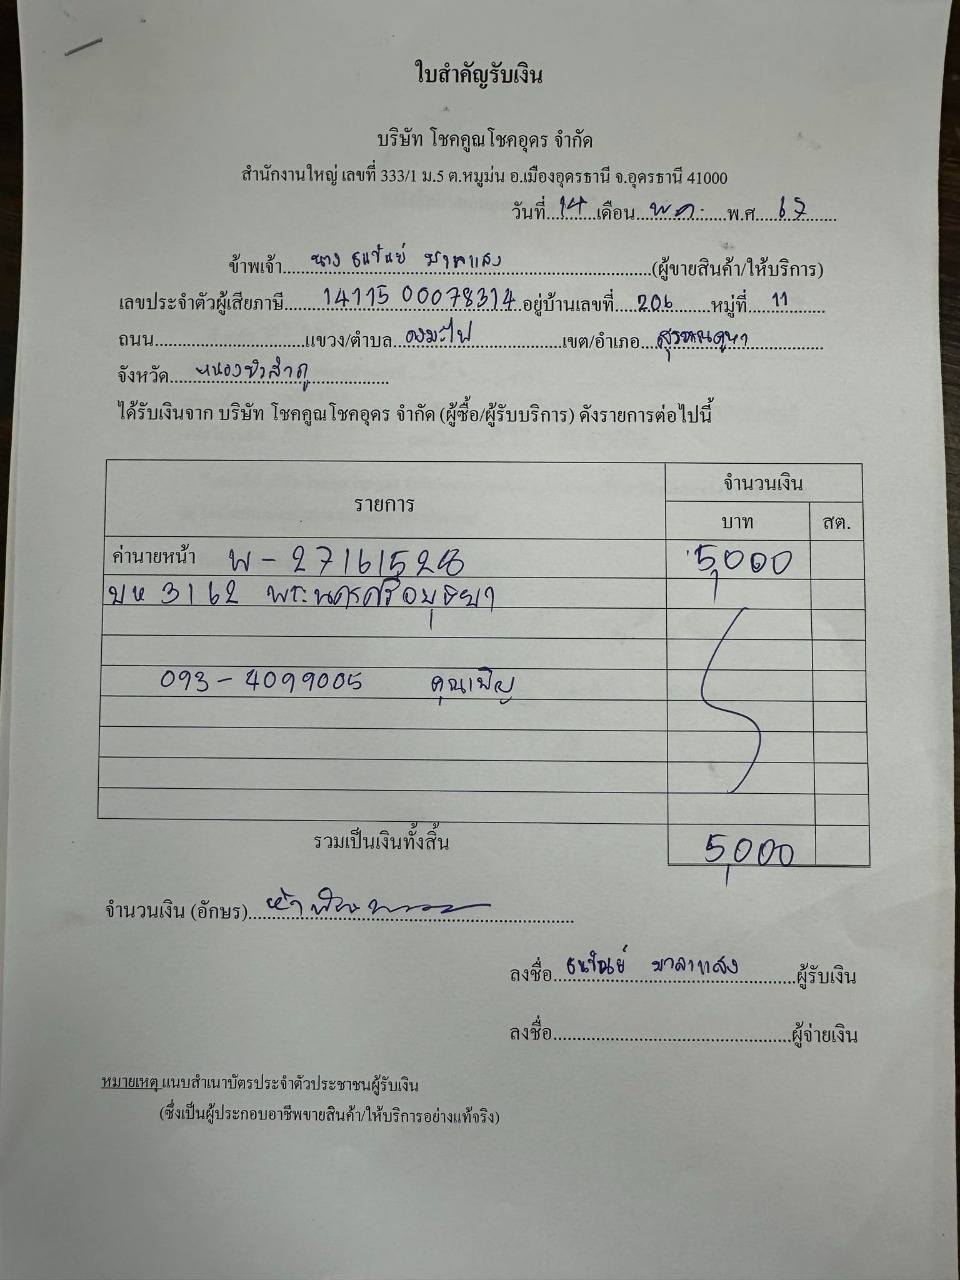 ใบสำคัญรับเงิน
บริษัท โชคคูณโชคอุดร จำกัด
สำนักงานใหญ่ เลขที่ 333/1 ม.5 ต.หมูม่น อ.เมืองอุดรธานี จ.อุดรธานี 41000
วันที่ 14 เดือน พ.ค. พ.ศ. 67
ข้าพเจ้า นาง (ผู้ขายสินค้า/ให้บริการ)
เลขประจำตัวผู้เสียภาษี 1411500078314 อยู่บ้านเลขที่ 206 หมู่ที่ 11
ถนน แขวง/ตำบล ดงมะไฟ เขต/อำเภอ สุวรรณคูหา
จังหวัด หนองบัวลำภู
ได้รับเงินจาก บริษัท โชคคูณโชคอุดร จำกัด (ผู้ซื้อ/ผู้รับบริการ) ดังรายการต่อไปนี้
รายการ จำนวนเงิน
บาท สต.
ค่านายหน้า พ-27161528 5,000
บห 3162 พระนครศรีอยุธยา
093-4099005 คุณเพ็ญ
รวมเป็นเงินทั้งสิ้น 5,000
จำนวนเงิน (อักษร) ห้าพันบาท
ลงชื่อ มาลาแสง ผู้รับเงิน
ลงชื่อ ผู้จ่ายเงิน
หมายเหตุ แนบสำเนาบัตรประจำตัวประชาชนผู้รับเงิน
(ซึ่งเป็นผู้ประกอบอาชีพขายสินค้า/ให้บริการอย่างแท้จริง)